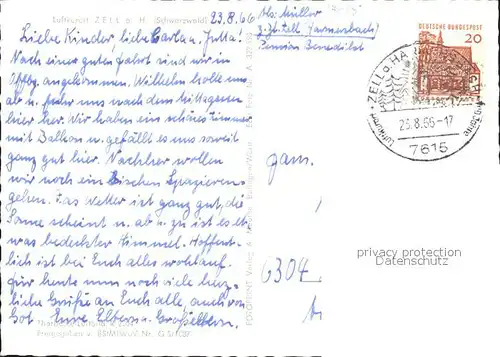 Luftkurort ZELL a. H. (Schwarzwald)
23.8.66
Abs: Müller
z. Zt. Zell (Harmersbach)
Pension Benedikt
Liebe Kinder liebe Carla u. Jutta!
Nach einer guten Fahrt sind wir in
Offbg. angekommen. Wilhelm holte uns
ab u. fuhr uns nach dem Mittagessen
hier her. Wir haben ein schönes Zimmer
mit Balkon u. gefällt es uns soweit
ganz gut hier. Nachher wollen
wir noch ein bischen Spazieren-
gehen. Das Wetter ist ganz gut, die
Sonne scheint u. ab u. zu ist es et-
was bedeckter Himmel. Hoffent-
lich ist bei Euch alles wohlauf.
Für heute nun noch viele herz-
liche Grüße an Euch alle, auch von
Eure Eltern u. Großeltern.
Fam.
6304
DEUTSCHE BUNDESPOST
20
ZELL a. HA
23.8.66-17
Luftkurort
7615
privacy protection
Datenschutz